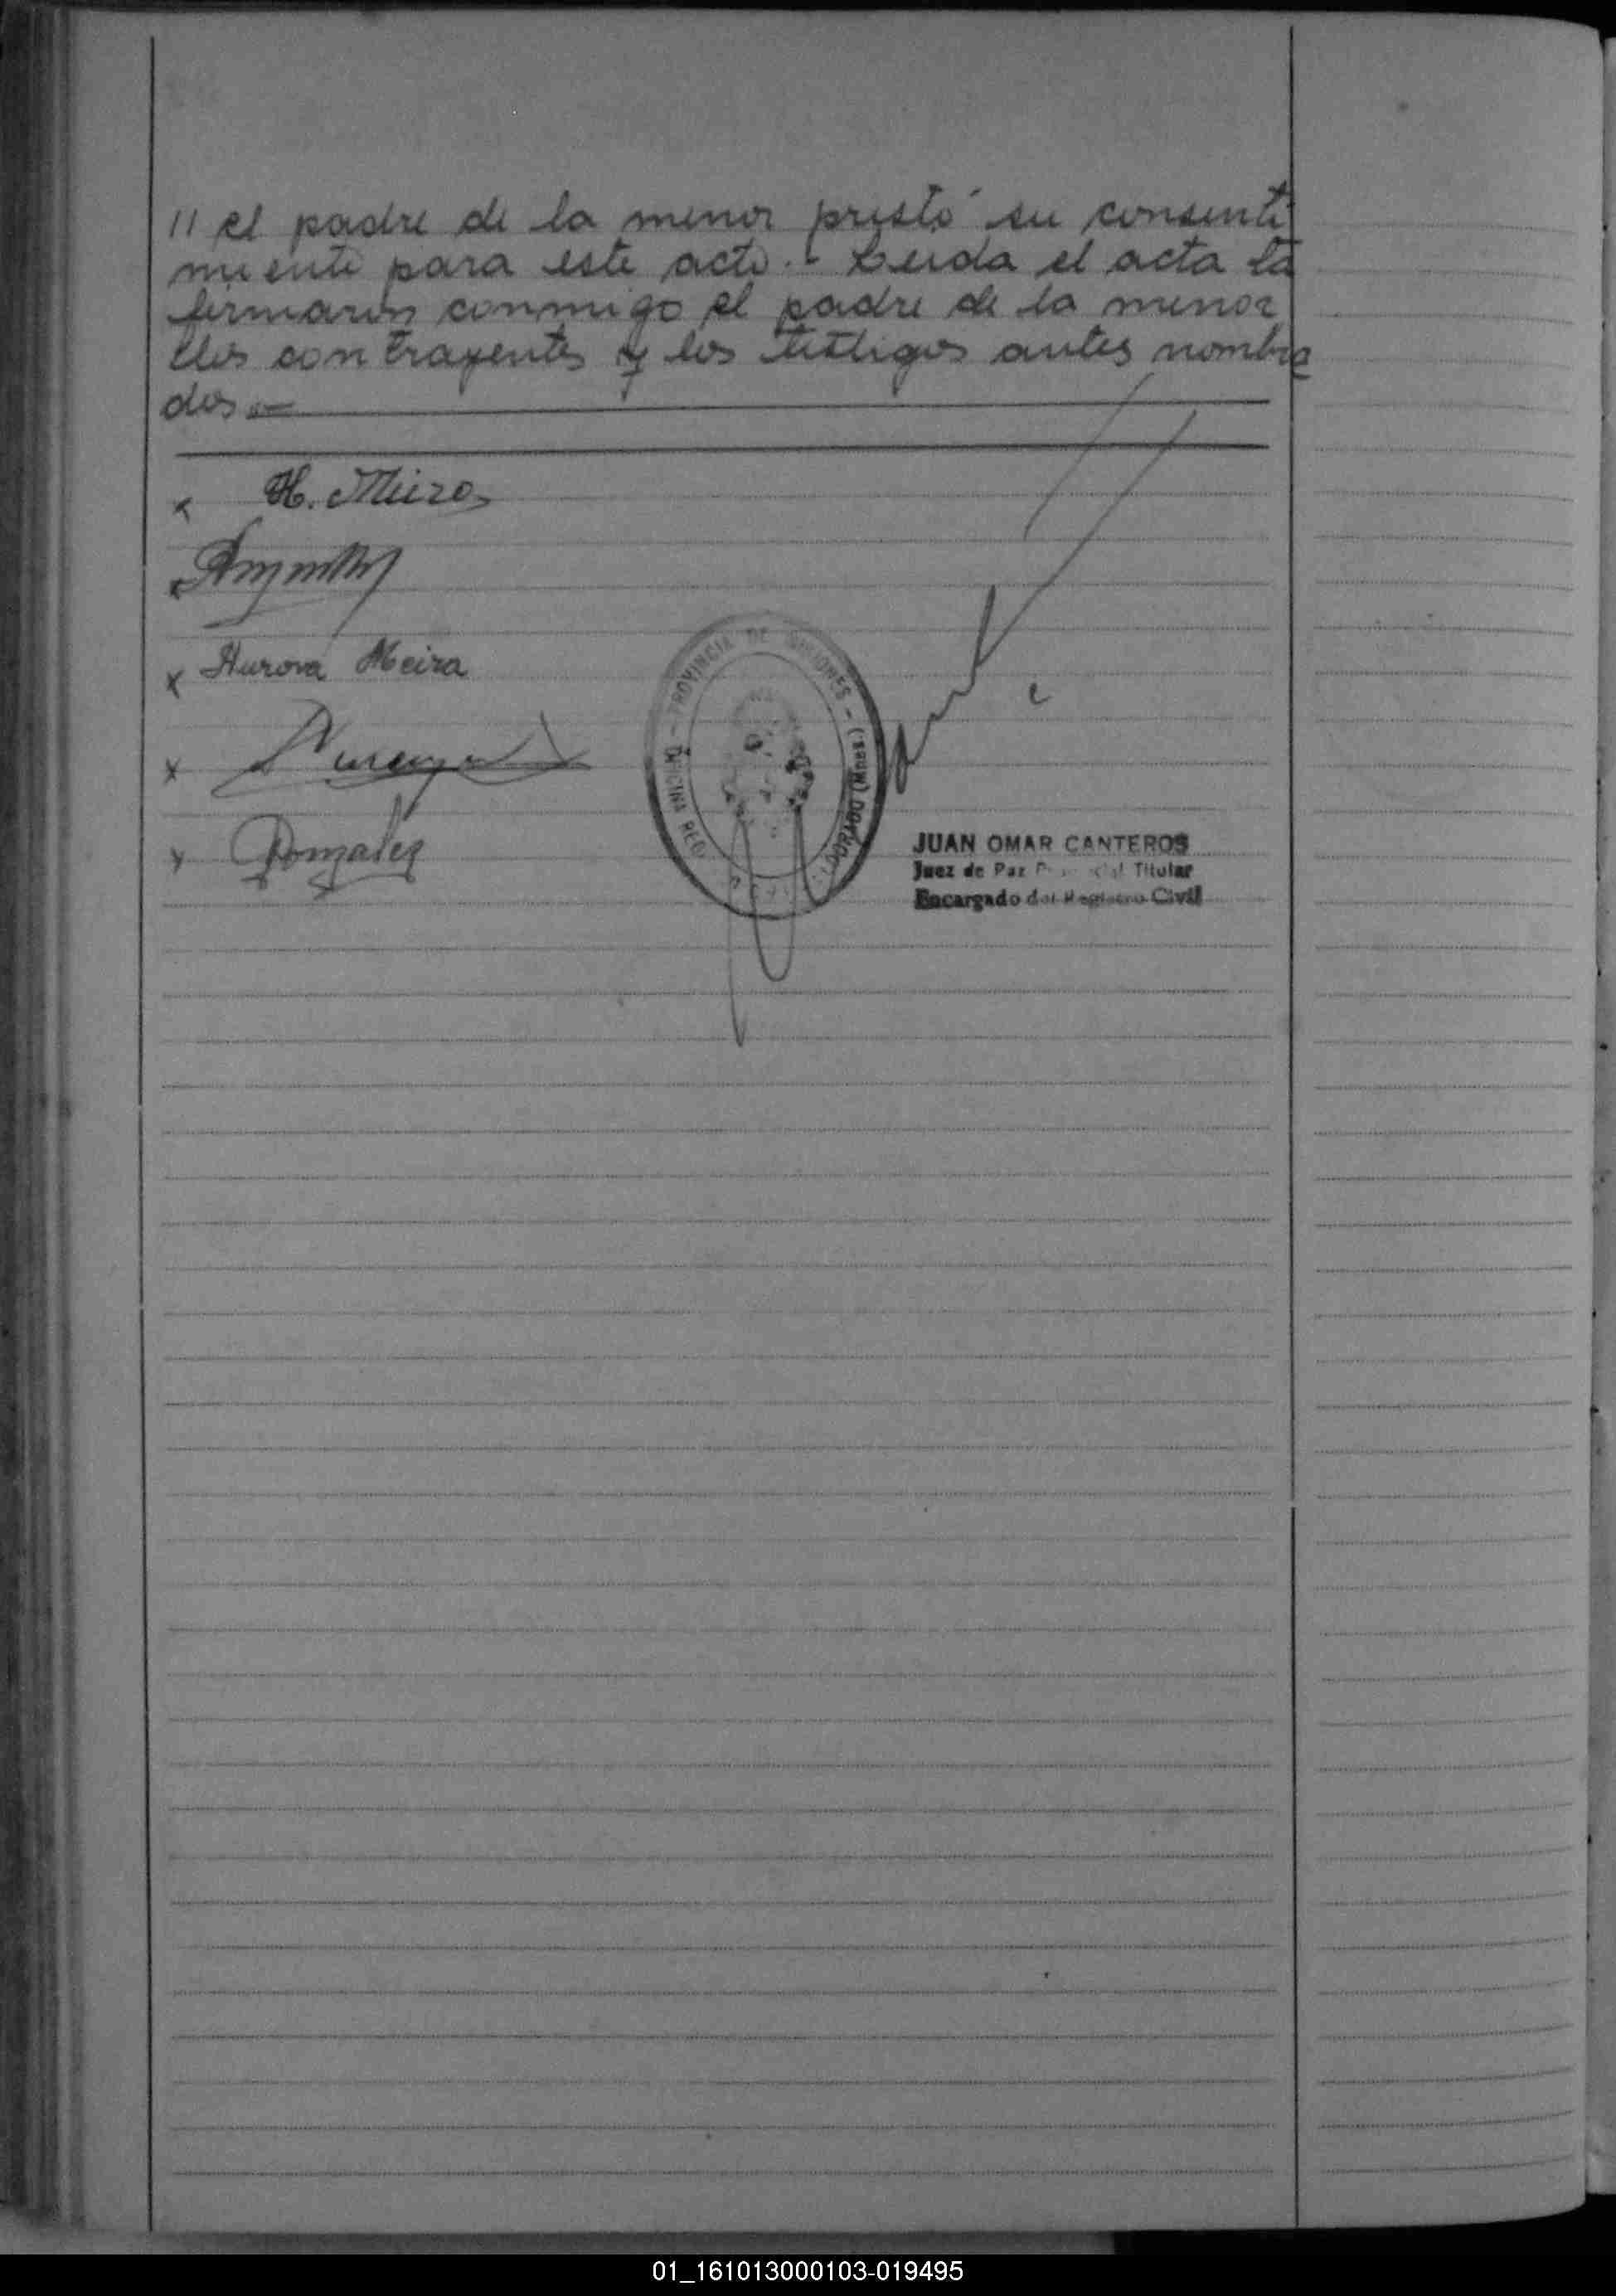 11 el padre de la menor prestó su consenti
miento para este acto.- Leida el acta la
firmaron conmigo el padre de la menor
llos contrayentes y los testigos antes nombra
dos.-
H. Meira
x Aurora Meira
x
x Gonzalez
PROVINCIA DE MISIONES - OFICINA REG. ELDORADO (Mnes.)
JUAN OMAR CANTEROS
Juez de Paz Provincial Titular
Encargado del Registro Civil
01_161013000103-019495